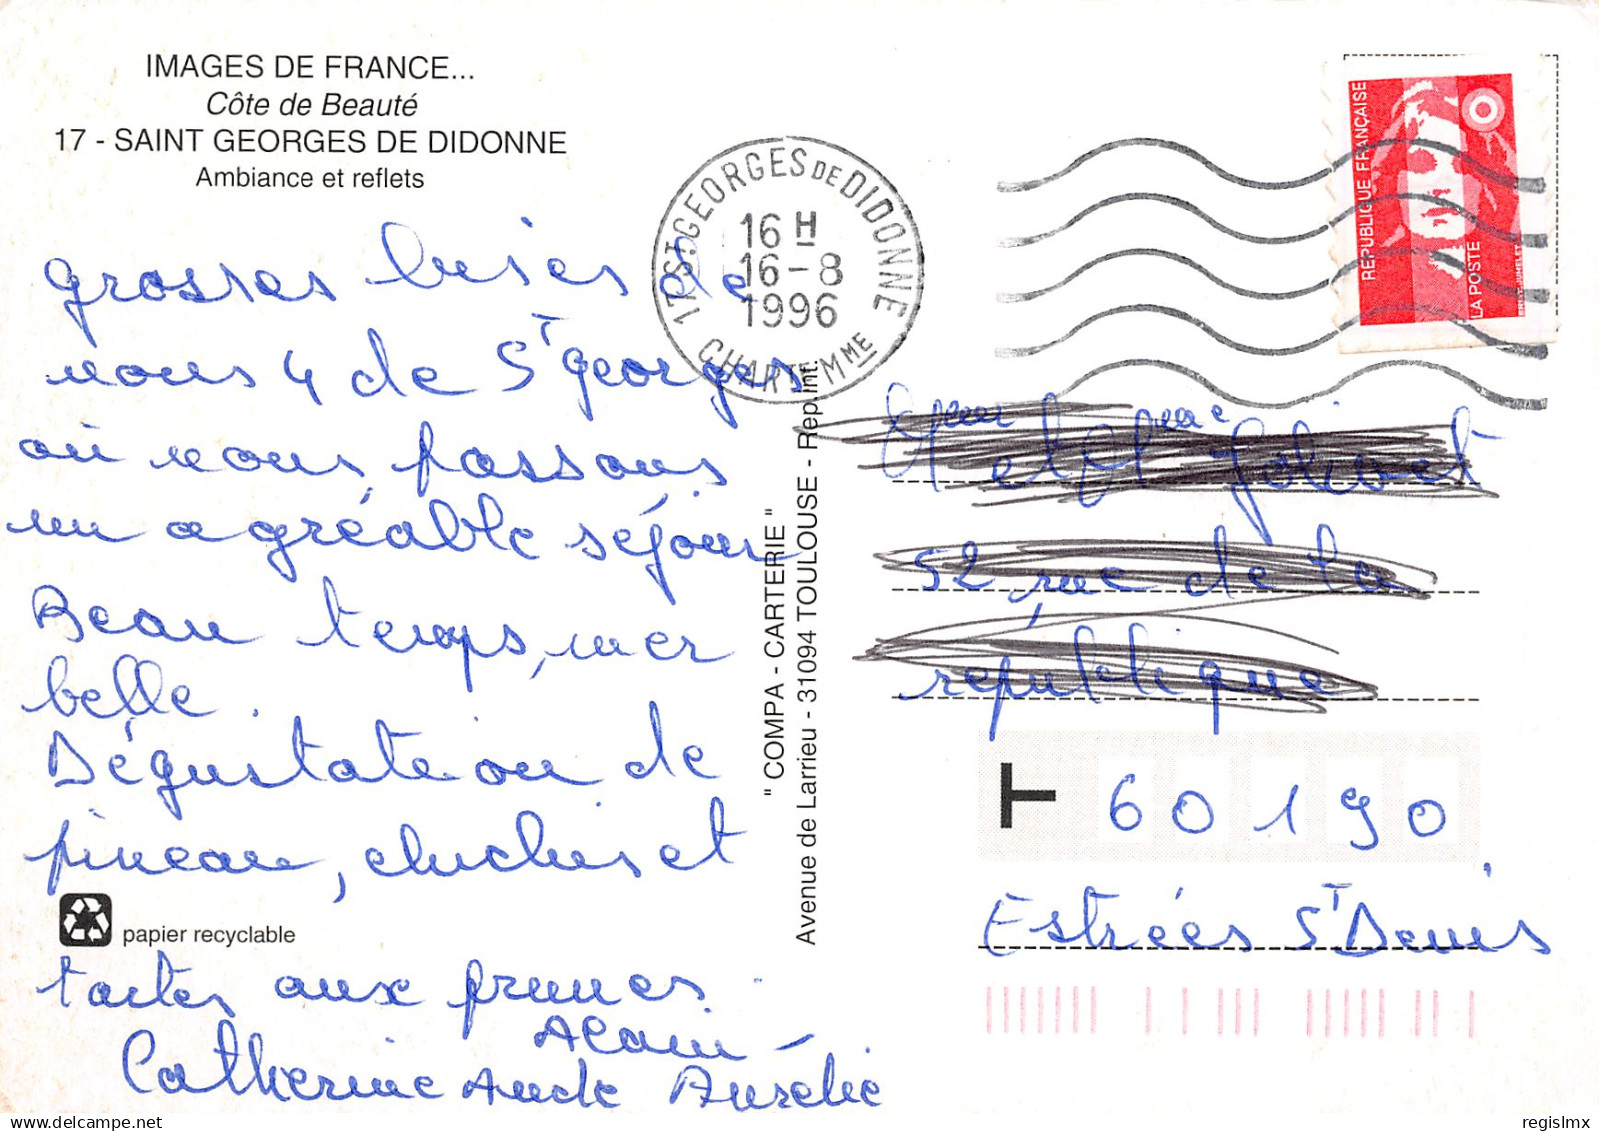 IMAGES DE FRANCE...
Côte de Beauté
17 - SAINT GEORGES DE DIDONNE
Ambiance et reflets
grosses bises de
nous 4 de St georges
où nous passons
un agréable séjour
Beau temps, mer
belle.
Dégustation de
pineau, chichis et
tartes aux prunes.
Alain -
Catherine Aude Aurélie
papier recyclable
" COMPA - CARTERIE "
Avenue de Larrieu - 31094 TOULOUSE - Rep. int.
17 ST GEORGES DE DIDONNE
16 H
16 - 8
1996
CHARTE MME
REPUBLIQUE FRANÇAISE
LA POSTE
et
52 rue de la
république
T 60190
Estrées St Denis
regislmx